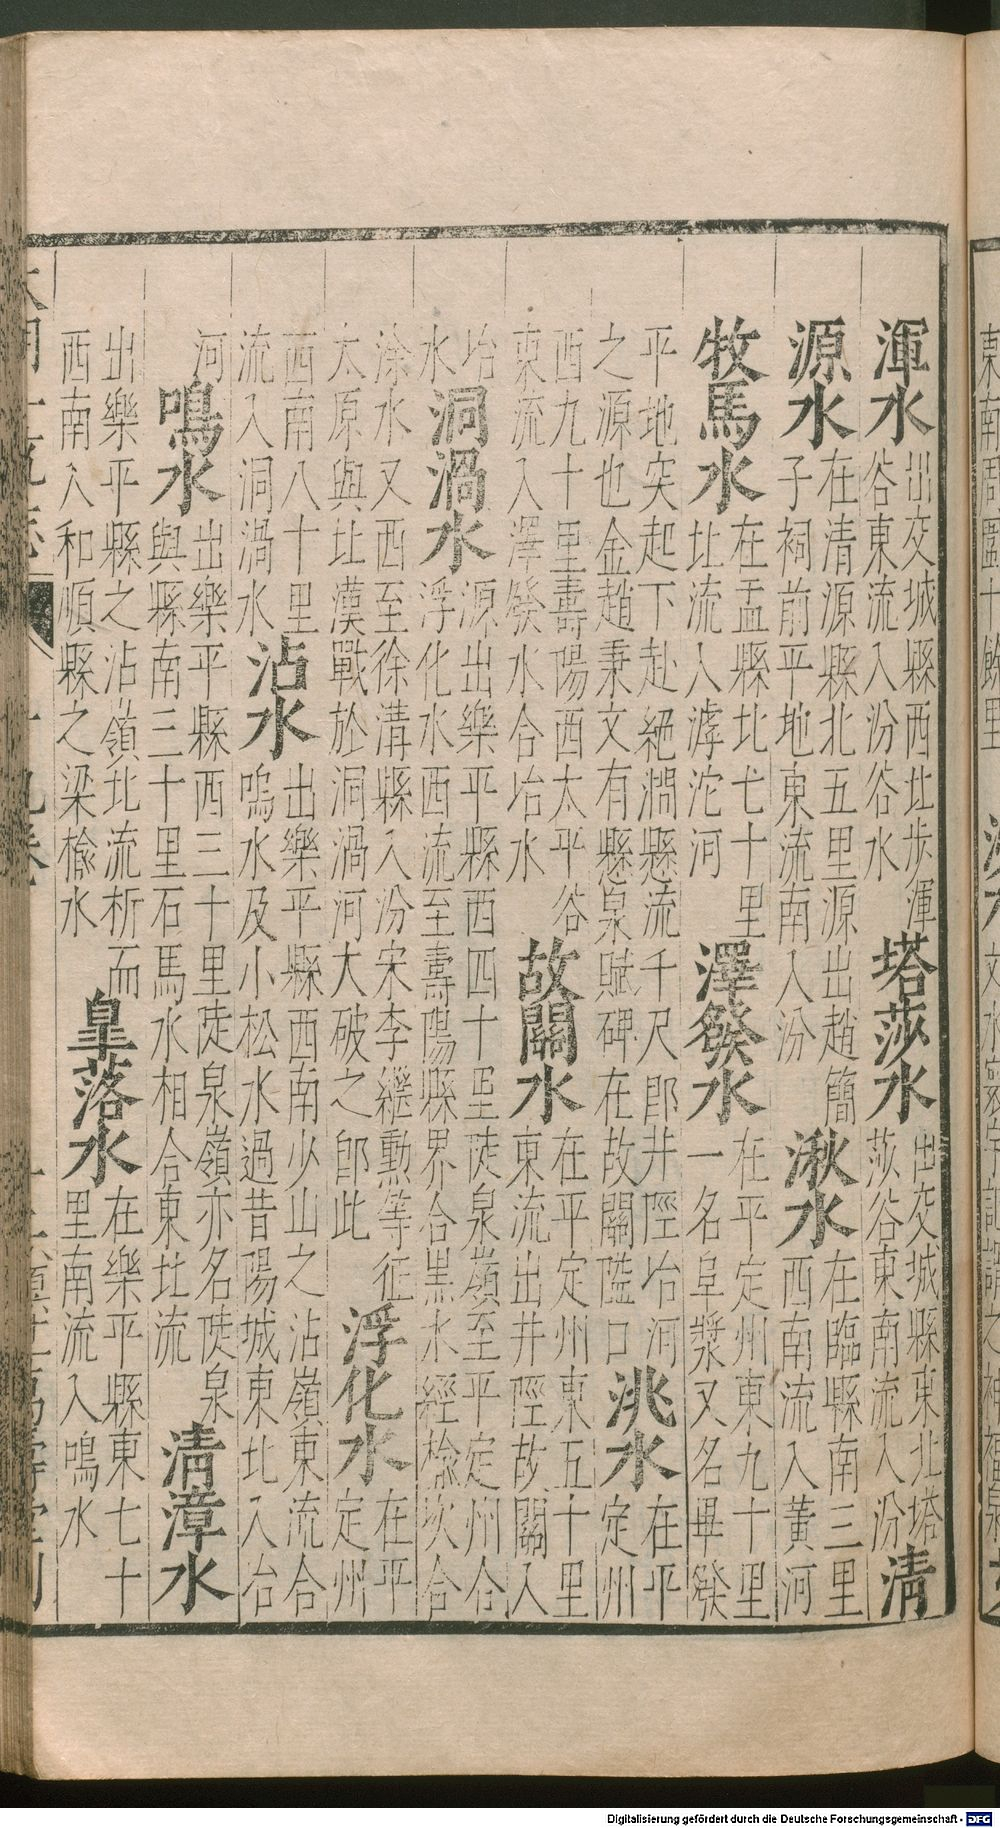 渾水出交城縣西北步渾谷東流入汾谷水塔莎水出交城縣東北塔莎谷東南流入汾清
源水在清源縣北五里源出趙簡子祠前平地東流南入汾湫水在臨縣南三里西南流入黃河
牧馬水在盂縣北七十里北流入滹沱河澤發水在平定州東九十里一名阜漿又名畢發
平地突起下赴絕澗懸流千尺即井陘冶河之源也金趙秉文有懸泉賦碑在故關隘口洮水在平定州
西九十里壽陽西太平谷東流入澤發水合冶水故關水在平定州東五十里東流出井陘故關入
冶水洞渦水源出樂平縣西四十里陡泉嶺至平定州合浮化水西流至壽陽縣界合黑水經榆次合
涂水又西至徐溝縣入汾宋李繼勳等征太原與北漢戰於洞渦河大破之即此浮化水在平定州
西南八十里流入洞渦水沾水出樂平縣西南少山之沾嶺東流合鳴水及小松水過昔陽城東北入冶
河鳴水出樂平縣西三十里陡泉嶺亦名陡泉與縣南三十里石馬水相合東北流清漳水
出樂平縣之沾嶺北流析而西南入和順縣之梁榆水皐落水在樂平縣東七十里南流入鳴水
大明一統志 十九卷
Digitalisierung gefördert durch die Deutsche Forschungsgemeinschaft - DFG